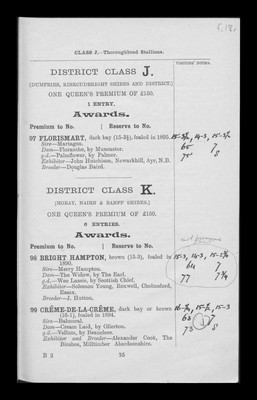 CLASS J.—Thoroughbred Stallions.
VISITORS' NOTES.
DISTRICT CLASS J.
(DUMFRIES, KIRKCUDBRIGHT SHIRES AND DISTRICT.)
ONE QUEEN'S PREMIUM OF £150.
1 ENTRY.
Awards.
Premium to No. | Reserve to No.
97 FLORISMART, dark bay (15-3½), foaled in 1895.
Sire—Martagon.
Dam—Floranthe, by Muncaster.
g.d.—Palmflower, by Palmer.
Exhibitor—John Hutchison, Newarkhill, Ayr, N.B.
Breeder—Douglas Baird.
DISTRICT CLASS K.
(MORAY, NAIRN & BANFF SHIRES.)
ONE QUEEN'S PREMIUM OF £150.
6 ENTRIES.
Awards.
Premium to No. | Reserve to No.
98 BRIGHT HAMPTON, brown (15-3), foaled in
1890.
Sire—Merry Hampton.
Dam—The Widow, by The Earl.
g.d.—Wee Lassie, by Scottish Chief.
Exhibitor—Solomon Young, Roxwell, Chelmsford,
Essex.
Breeder—J. Hutton.
99 CRÊME-DE-LA-CRÊME, dark bay or brown
(16-1), foaled in 1894.
Sire—Balmoral.
Dam—Cream Laid, by Ollerton.
g.d.—Vellum, by Beauclerc.
Exhibitor and Breeder—Alexander Cook, The
Bindon, Milltimber Aberdeenshire.
B 2
35